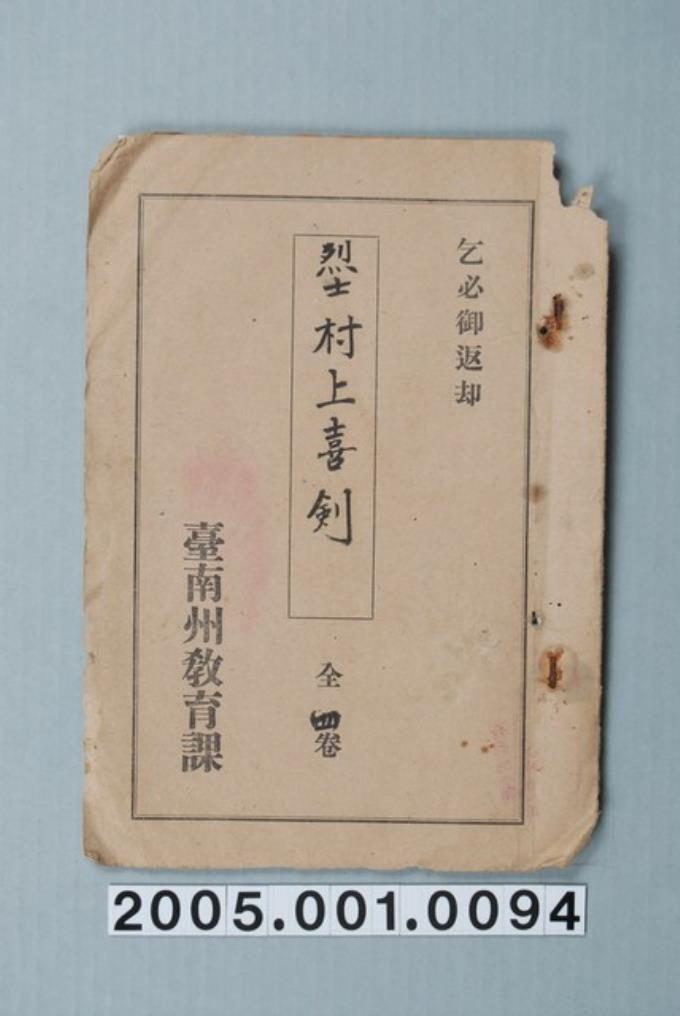 乞必御返却
烈士村上喜剣
全四卷
臺南州教育課
2005.001.0094